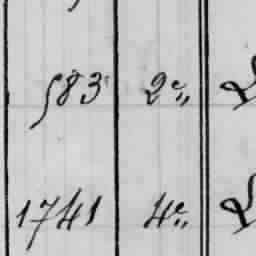 583 2e„
1741 4e„